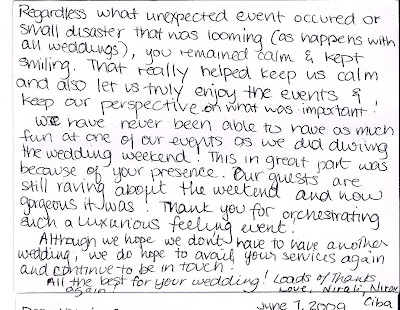 Regardless what unexpected event occured or
small disaster that was looming (as happens with
all weddings), you remained calm & kept
smiling. That really helped keep us calm
and also let us truly enjoy the events &
keep our perspective on what was important!
We have never been able to have as much
fun at one of our events as we did during
the wedding weekend! This in great part was
because of your presence. Our guests are
still raving about the weekend and how
gorgeous it was! Thank you for orchestrating
such a luxurious feeling event!
Although we hope we don't have to have another
wedding, we do hope to avail your services again
and continue to be in touch!
All the best for your wedding! Loads of Thanks
again! Love, Nirali, Nirav
Ciba
June 7, 2009